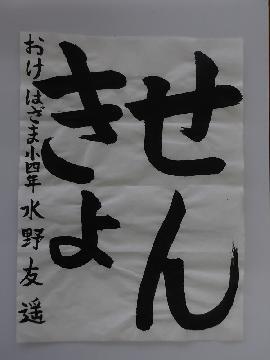 せん
きょ
おけはざま小四年 水野友遥